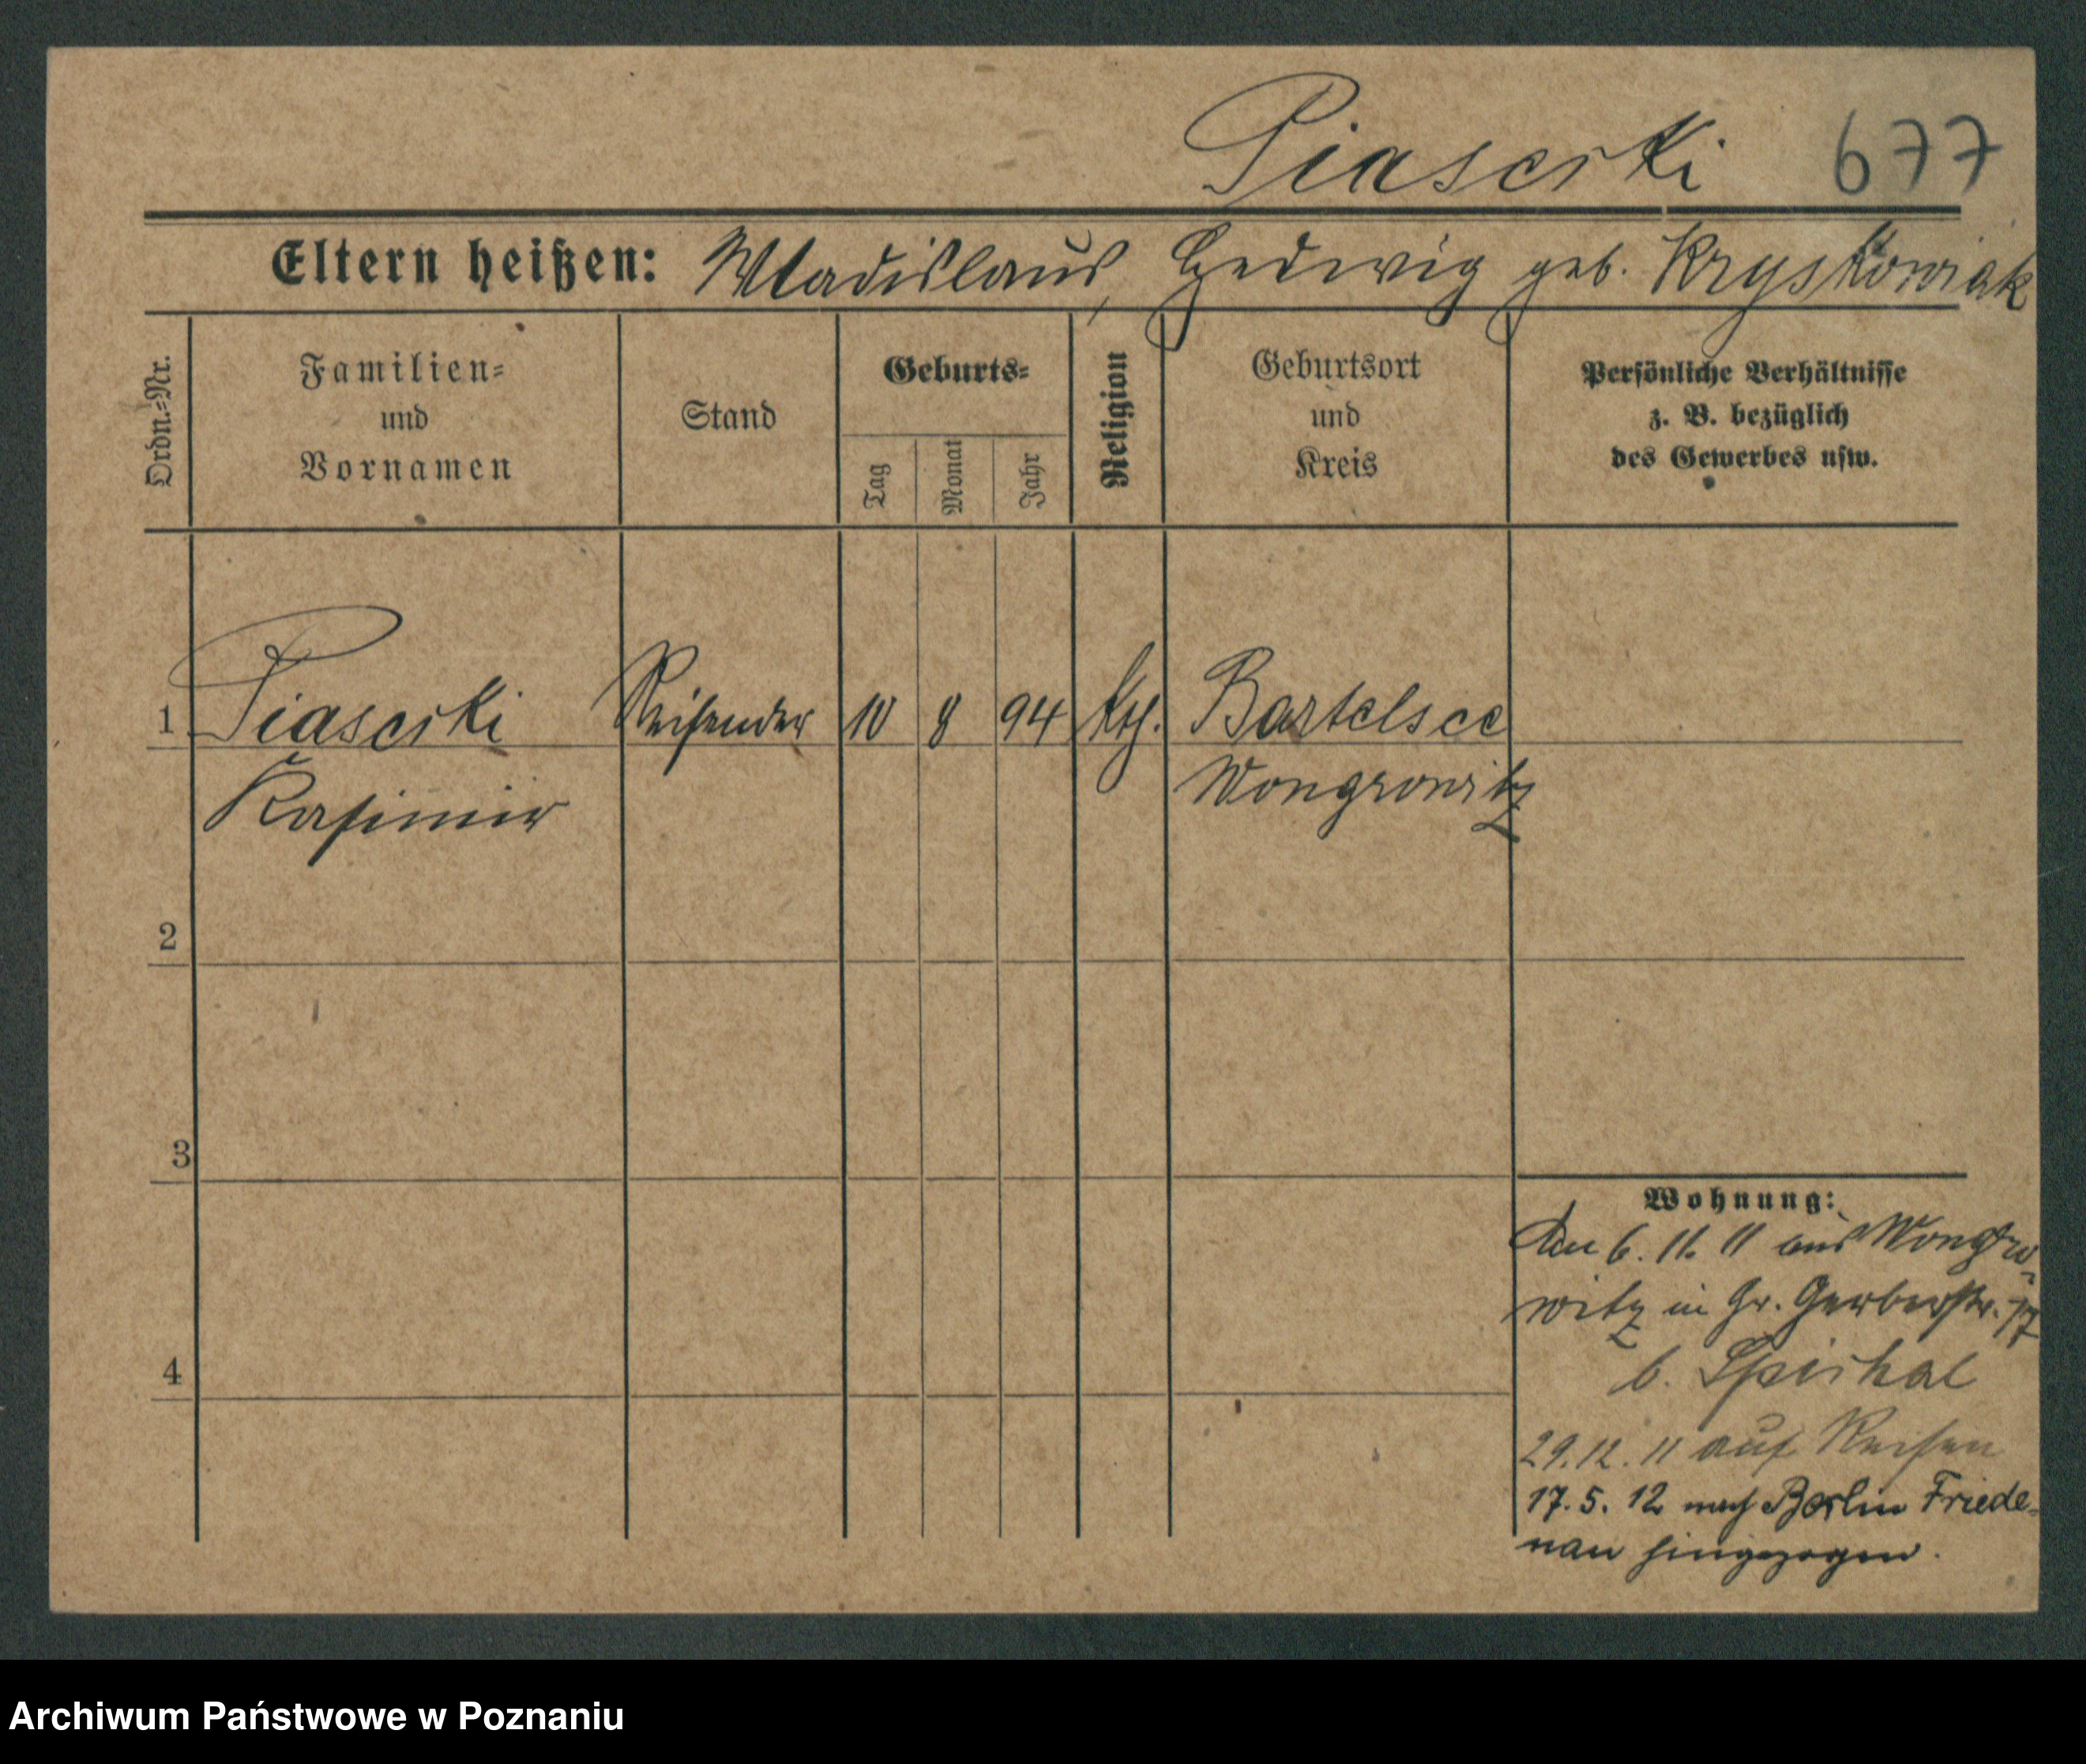 Piaserski 677
Eltern heißen: Wladislaus, Hedwig geb. Kryskowiak
Ordn.-Nr.
Familien-
und
Vornamen
Stand
Geburts-
Tag
Monat
Jahr
Religion
Geburtsort
und
Kreis
Persönliche Verhältnisse
z. B. bezüglich
des Gewerbes usw.
1 Piaserski Reisender 10 8 94 kth. Bartelsee
Kasimir Wongrowitz
2
3
4
Wohnung:
Am 6. 11. 11 aus Wongro-
witz in Gr. Gerberstr. 17
b.
29.12.11 auf Reisen
17. 5. 12 nach Berlin Friede-
nau hingezogen.
Archiwum Państwowe w Poznaniu